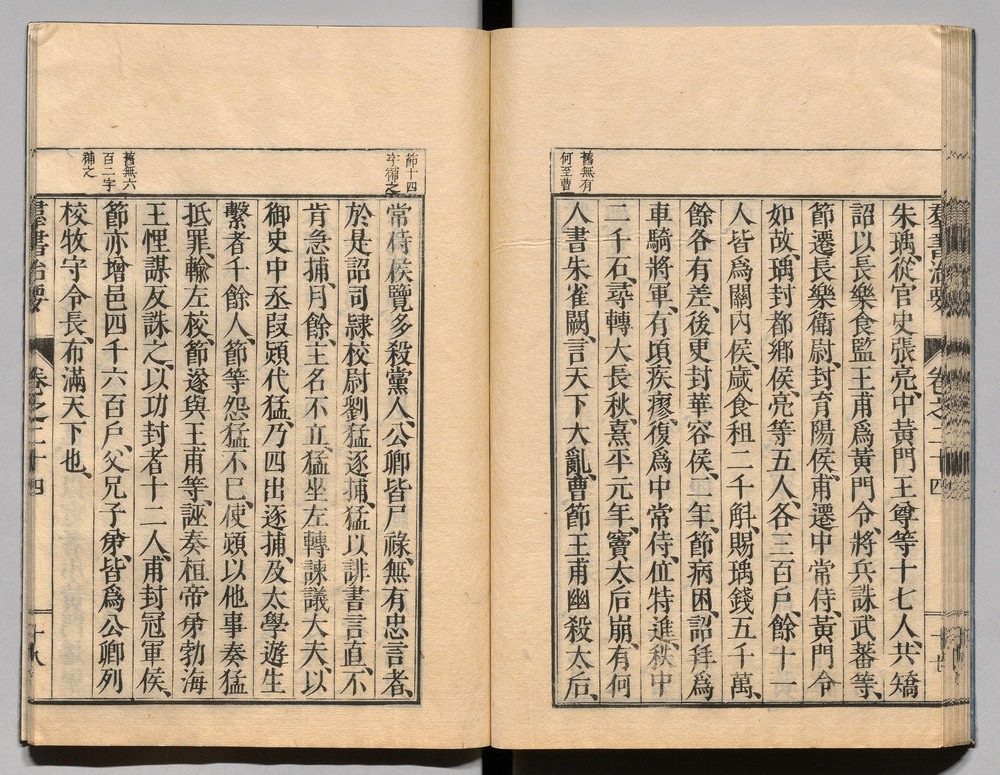 羣書治要 卷之二十四
舊無有
何至曹
朱瑀、從官史張亮、中黃門王尊等十七人、共矯
詔以長樂食監王甫爲黃門令、將兵誅武蕃等、
節遷長樂衞尉、封育陽侯、甫遷中常侍、黃門令
如故、瑀封都鄉侯、亮等五人、各三百戶、餘十一
人皆爲關內侯、歲食租二千斛、賜瑀錢五千萬、
餘各有差、後更封華容侯、二年、節病困、詔拜爲
車騎將軍、有頃疾瘳、復爲中常侍、位特進、秩中
二千石、尋轉大長秋、熹平元年、竇太后崩、有何
人書朱雀闕、言天下大亂、曹節王甫幽殺太后、
節十四
字補之
常侍侯覽多殺黨人、公卿皆尸祿、無有忠言者、
於是詔司隸校尉劉猛逐捕、猛以誹書言直、不
肯急捕、月餘、主名不立、猛坐左轉諫議大夫、以
御史中丞段熲代猛、乃四出逐捕、及太學遊生
繫者千餘人、節等怨猛不已、使熲以他事奏猛
抵罪、輸左校、節遂與王甫等、誣奏桓帝弟勃海
王悝謀反誅之、以功封者十二人、甫封冠軍侯、
節亦增邑四千六百戶、父兄子弟、皆爲公卿列
校牧守令長、布滿天下也、
舊無六
百二字
補之
羣書治要 卷之二十四 十八